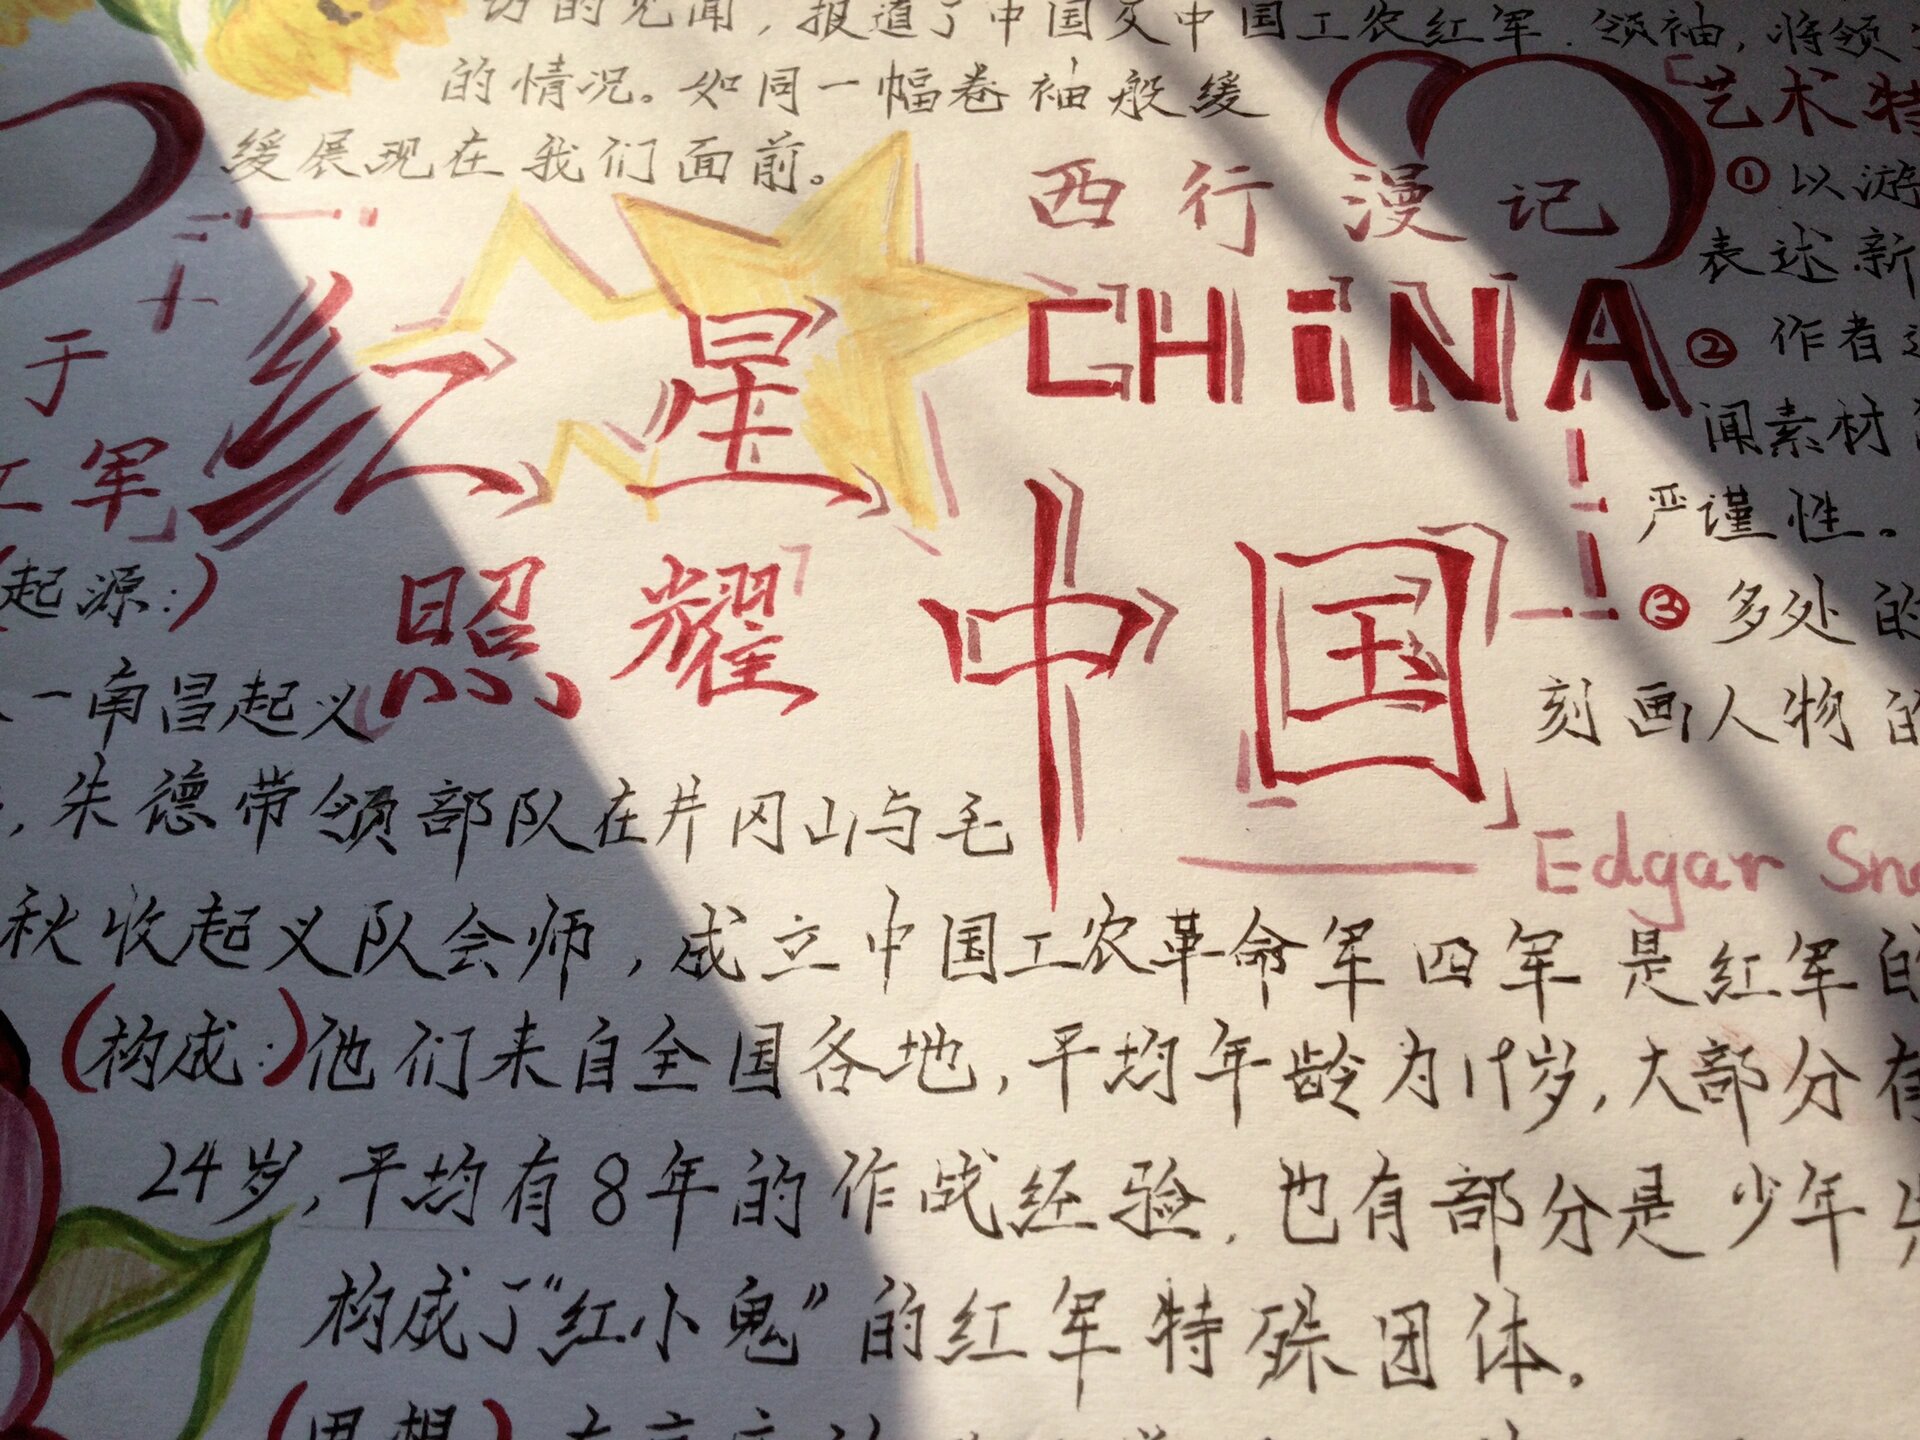 的见闻，报道了中国及中国工农红军.领袖，将领
的情况。如同一幅卷袖般缓
缓展现在我们面前。
西行漫记
CHiNA
红星
照耀中国
Edgar
艺术特
①以游
表述新
②作者
闻素材
严谨性。
③多处的
刻画人物的
于
军
起源:)
一南昌起义
,朱德带领部队在井冈山与毛
秋收起义队会师,成立中国工农革命军四军是红军的
(构成:)他们来自全国各地,平均年龄为19岁,大部分有
24岁,平均有8年的作战经验,也有部分是少年
构成了"红小鬼"的红军特殊团体。
(思想)